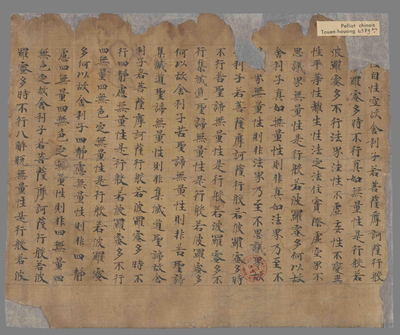 Pelliot chinois
Touen-houang
自性空故舍利子若菩薩摩訶薩行般
羅蜜多時不行真如無量性是行般若
波羅蜜多不行法界法性不虛妄性不變異
性平等性離生性法定法住實際虛空界不
思議界無量性是行般若波羅蜜多何以故
舍利子真如無量性則非真如法界乃至不
界無量性則非法界乃至不思議界故
子若菩薩摩訶薩行般若波羅蜜多時
不行苦聖諦無量性是行般若波羅蜜多不
行集滅道聖諦無量性是行般若波羅蜜多
何以故舍利子苦聖諦無量性則非苦聖諦
集滅道聖諦無量性則非集滅道聖諦故舍
利子若菩薩摩訶薩行般若波羅蜜多時不
行四靜慮無量性是行般若波羅蜜多不行
四無量四無色定無量性是行般若波羅蜜
多何以故舍利子四靜慮無量性則非四靜
慮四無量四無色定無量性則非四無量四
無色定故舍利子若菩薩摩訶薩行般若波
羅蜜多時不行八解脫無量性是行般若波